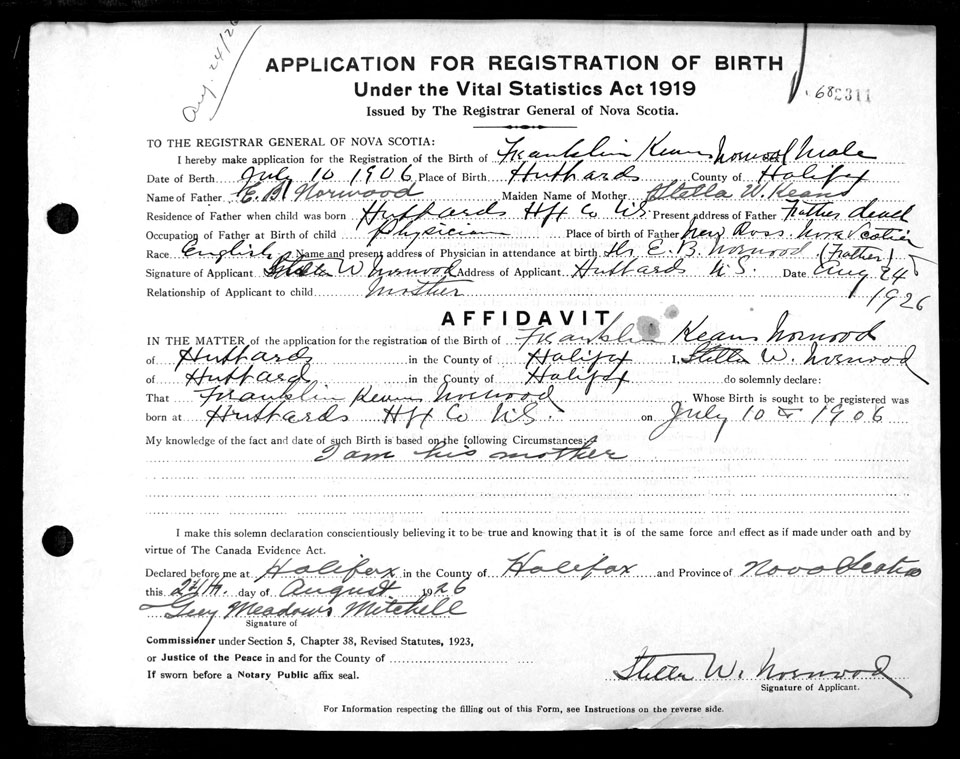 Aug. 24/26
APPLICATION FOR REGISTRATION OF BIRTH
Under the Vital Statistics Act 1919
Issued by The Registrar General of Nova Scotia.
TO THE REGISTRAR GENERAL OF NOVA SCOTIA:
I hereby make application for the Registration of the Birth of Franklin Keans Norwood Male
Date of Birth July 10 1906 Place of Birth Hubbards County of Halifax
Name of Father E. B. Norwood Maiden Name of Mother Stella W. Keans
Residence of Father when child was born Hubbards Hfx Co N.S. Present address of Father Father dead
Occupation of Father at Birth of child Physician Place of birth of Father New Ross Nova Scotia
Race English Name and present address of Physician in attendance at birth Dr. E. B. Norwood (Father)
Signature of Applicant Stella W Norwood Address of Applicant Hubbards N.S. Date Aug 24
Relationship of Applicant to child Mother 1926
AFFIDAVIT
IN THE MATTER of the application for the registration of the Birth of Franklin Keans Norwood
of Hubbards in the County of Halifax I, Stella W. Norwood
of Hubbard in the County of Halifax do solemnly declare:
That Franklin Keans Norwood Whose Birth is sought to be registered was
born at Hubbards Hfx Co N.S. on July 10 1906
My knowledge of the fact and date of such Birth is based on the following Circumstances:
I am his mother
I make this solemn declaration conscientiously believing it to be true and knowing that it is of the same force and effect as if made under oath and by
virtue of The Canada Evidence Act.
Declared before me at Halifax in the County of Halifax and Province of Nova Scotia
this 24th. day of August 1926
Guy Meadows Mitchell
Signature of
Commissioner under Section 5, Chapter 38, Revised Statutes, 1923,
or Justice of the Peace in and for the County of
If sworn before a Notary Public affix seal.
Stella W. Norwood
Signature of Applicant.
For Information respecting the filling out of this Form, see Instructions on the reverse side.